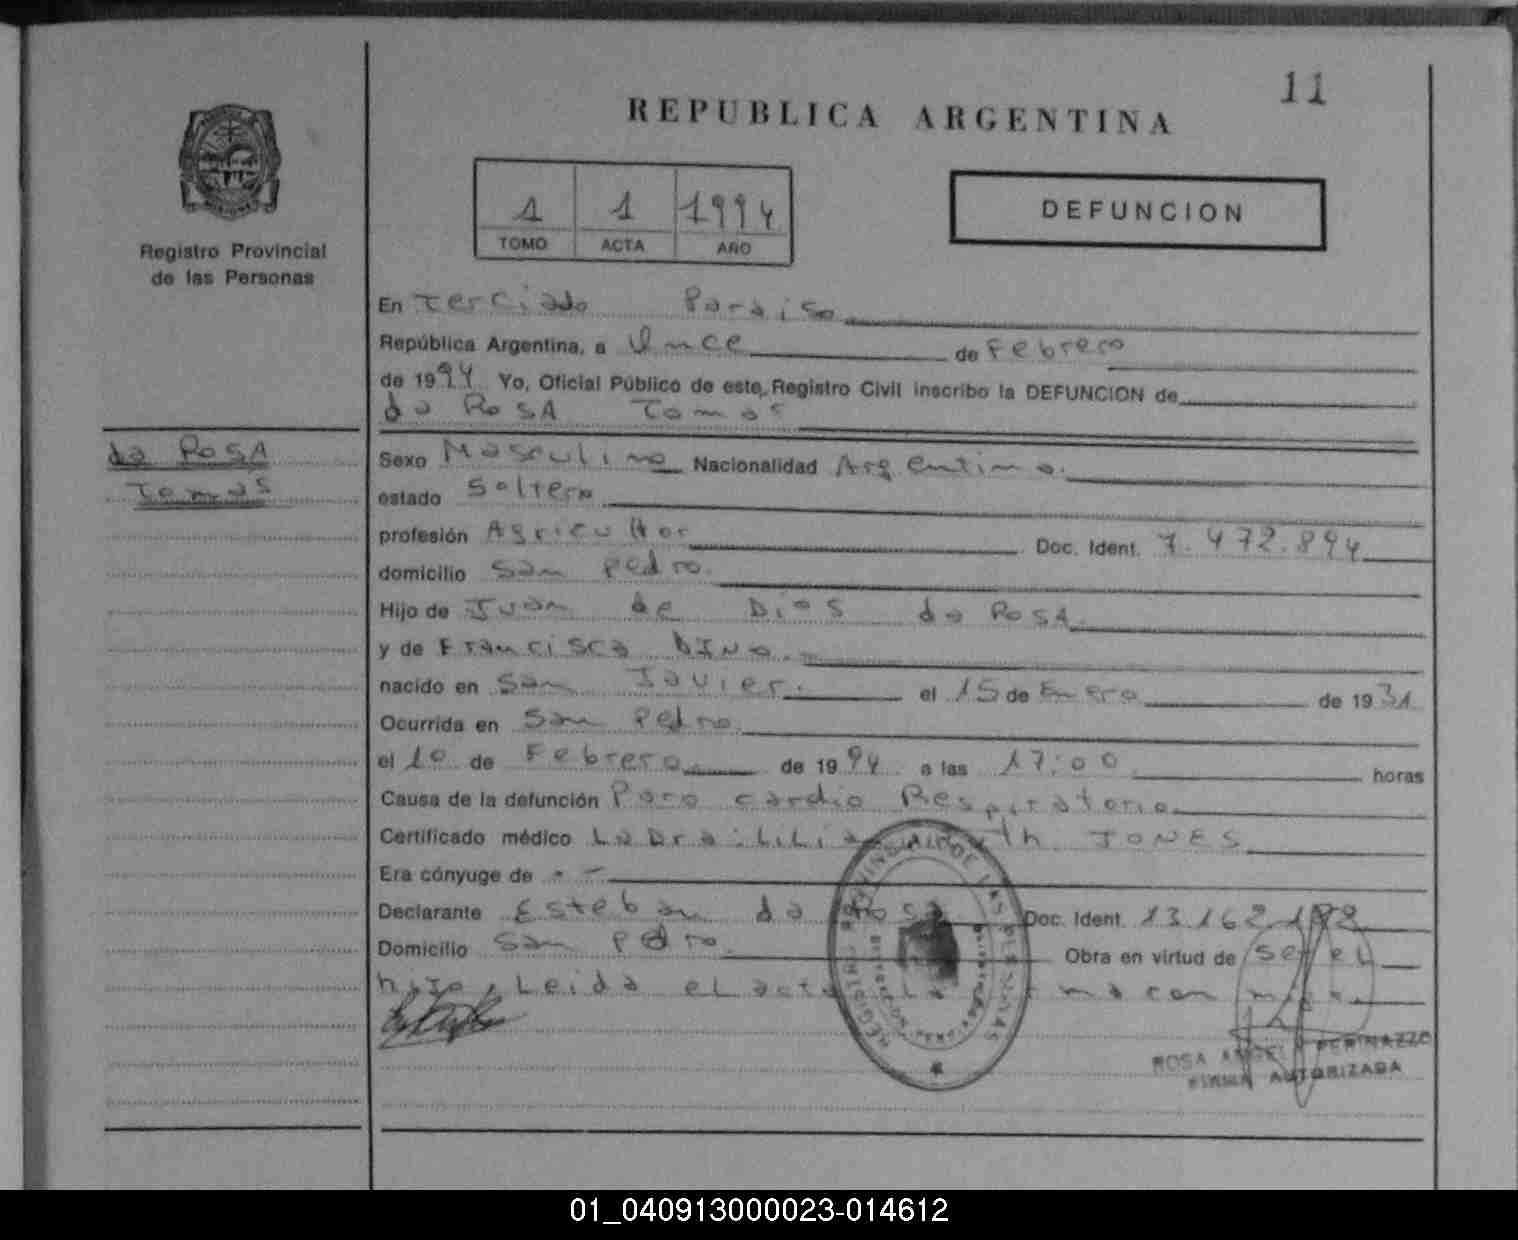 11
REPUBLICA ARGENTINA
1 1 1994
TOMO ACTA AÑO
DEFUNCION
Registro Provincial
de las Personas
En Terciado Paraiso
República Argentina, a Once de Febrero
de 1994 Yo, Oficial Público de este Registro Civil inscribo la DEFUNCION de
da ROSA Tomas
da ROSA
Tomas
Sexo Masculino Nacionalidad Argentino.
estado Soltero
profesión Agricultor Doc. Ident. 7.472.894
domicilio San Pedro.
Hijo de Juan de Dios da ROSA.
y de Francisca DINO.
nacido en San Javier. el 15 de Enero de 1931
Ocurrida en San Pedro.
el 10 de Febrero de 1994 a las 17:00 horas
Causa de la defunción Paro cardio Respiratorio
Certificado médico La Dra: LiLia JONES
Era cónyuge de - -
Declarante Esteban da Rosa Doc. Ident. 13.162.182
Domicilio San Pedro. Obra en virtud de Ser el
hijo, Leida el acta La con
REGISTRO PROVINCIAL DE LAS PERSONAS
ROSA PERINAZZO
FIRMA AUTORIZADA
01_040913000023-014612